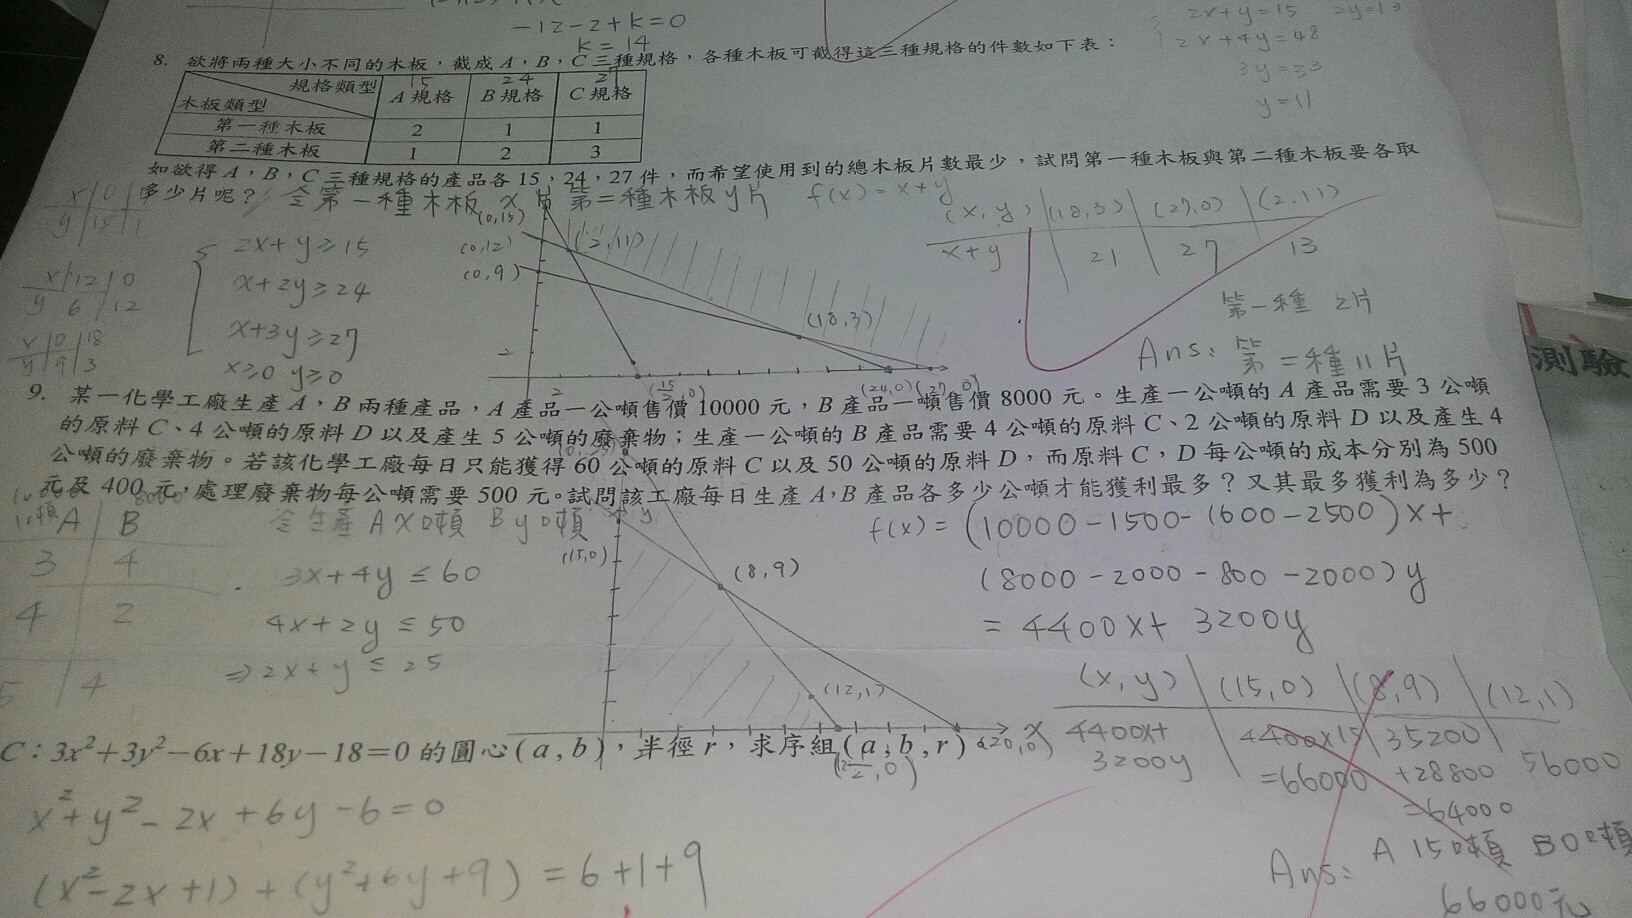 -12-2+k=0
k=14
2x+y=15
2x+4y=48
3y=33
y=11
8. 欲將兩種大小不同的木板，截成A，B，C三種規格，各種木板可截得這三種規格的件數如下表：
15 24 27
規格類型 A規格 B規格 C規格
木板類型
第一種木板 2 1 1
第二種木板 1 2 3
如欲得A，B，C三種規格的產品各15，24，27件，而希望使用到的總木板片數最少，試問第一種木板與第二種木板要各取
多少片呢？
令第一種木板x片 第二種木板y片 f(x)=x+y
x 0
y 15 1
2x+y≥15
x 12 0
y 6 12
x+2y≥24
x 0 18
y 9 3
x+3y≥27
x≥0 y≥0
(0,15)
(0,12) (2,11)
(0,9)
(18,3)
2
2 (15/2,0) (24,0) (27,0)
(x,y) (18,3) (27,0) (2,11)
x+y 21 27 13
第一種 2片
Ans: 第二種11片
測驗
9. 某一化學工廠生產A，B兩種產品，A產品一公噸售價10000元，B產品一噸售價8000元。生產一公噸的A產品需要3公噸
的原料C、4公噸的原料D以及產生5公噸的廢棄物；生產一公噸的B產品需要4公噸的原料C、2公噸的原料D以及產生4
公噸的廢棄物。若該化學工廠每日只能獲得60公噸的原料C以及50公噸的原料D，而原料C，D每公噸的成本分別為500
元及400元，處理廢棄物每公噸需要500元。試問該工廠每日生產A,B產品各多少公噸才能獲利最多？又其最多獲利為多少？
8000
A B
3 4
4 2
5 4
令生產A x噸 B y噸
3x+4y≤60
4x+2y≤50
⇒2x+y≤25
y
(15,0)
(8,9)
(12,1)
x
(20,0)
(25/2,0)
f(x)=(10000-1500-1600-2500)x+
(8000-2000-800-2000)y
=4400x+3200y
(x,y) (15,0) (8,9) (12,1)
4400x+ 4400x15 35200
3200y =66000 +28800 56000
=64000
Ans: A 15噸 B 0噸
66000元
C：3x²+3y²-6x+18y-18=0的圓心(a,b)，半徑r，求序組(a,b,r)
x²+y²-2x+6y-6=0
(x²-2x+1)+(y²+6y+9)=6+1+9